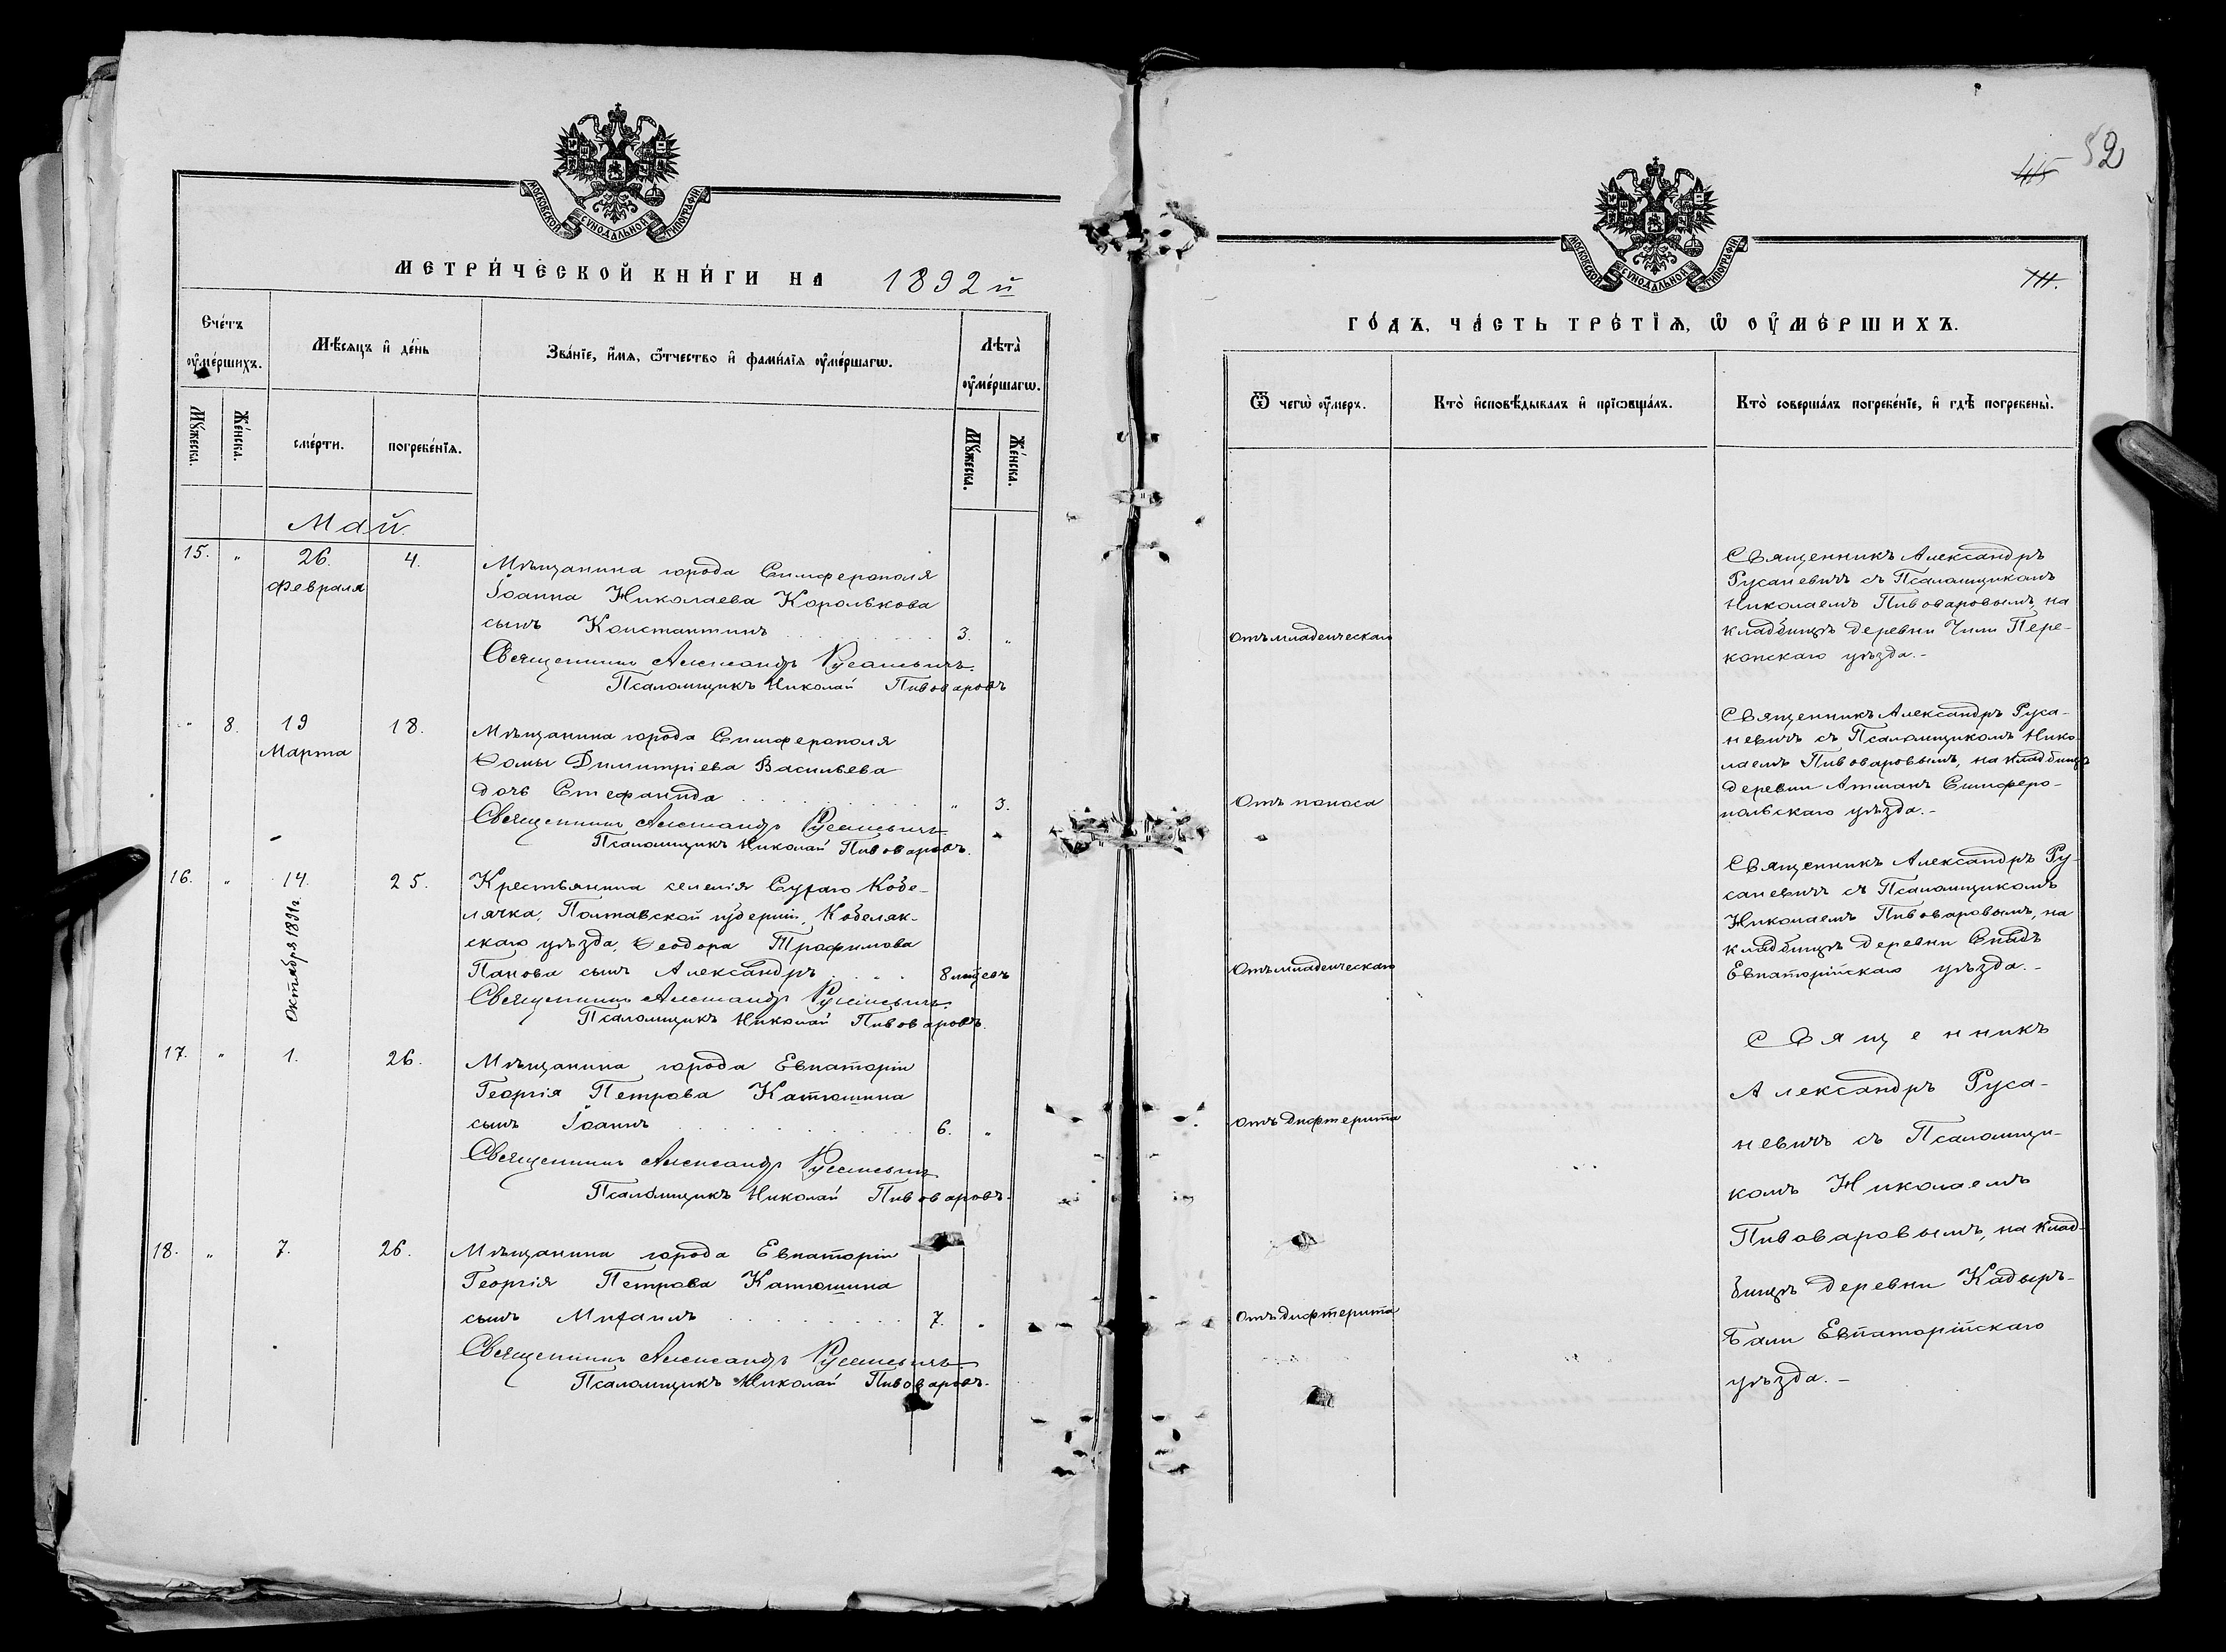 МОСКОВСКОЙ СѴНОДАЛЬНОЙ ТИПОГРАФІИ
МЕТРИ́ЧЕСКОЙ КНИ́ГИ НА 1892 й
Сче́тъ ᲂу҆ме́ршихъ.
Мѣ́сяцъ и҆ де́нь
Зва́нїе, и҆́мѧ, ѻ҆́тчество и҆ фами́лїѧ ᲂу҆ме́ршагѡ.
Лѣта̀ ᲂу҆ме́ршагѡ.
Мꙋ́жеска.
Же́нска.
сме́рти.
погребе́нїѧ.
Мꙋ́жеска.
Же́нска.
Май.
15. " 26. Февраля 4.
Мѣщанина города Симферополя
Іоанна Николаева Королькова
сынъ Константинъ . . . . . . . . 3. "
Священникъ Александръ Русаневичъ.
Псаломщикъ Николай Пивоваровъ
" 8. 19 Марта 18.
Мѣщанина города Симферополя
Ѳомы Димитріева Васильева
дочь Стефанида . . . . . . . . " 3.
Священникъ Александръ Русаневичъ
Псаломщикъ Николай Пивоваровъ.
16. " 14. Октября 1891г. 25.
Крестьянина селенія Сухаго Кобе-
лячка, Полтавской губерніи, Кобеляк-
скаго уѣзда, Ѳеодора Трофимова
Панова сынъ Александръ . . . . 8 мѣсяцевъ
Священникъ Александръ Русаневичъ.
Псаломщикъ Николай Пивоваровъ.
17. " 1. 26.
Мѣщанина города Евпаторіи
Георгія Петрова Катюшина
сынъ Іоаннъ . . . . . . . . 6. "
Священникъ Александръ Русаневичъ
Псаломщикъ Николай Пивоваровъ.
18. " 7. 26.
Мѣщанина города Евпаторіи
Георгія Петрова Катюшина
сынъ Михаилъ . . . . . . . . 7. "
Священникъ Александръ Русаневичъ.
Псаломщикъ Николай Пивоваровъ.
52
45
МОСКОВСКОЙ СѴНОДАЛЬНОЙ ТИПОГРАФІИ
ГО́ДЪ, ЧА́СТЬ ТРЕ́ТЇѦ, Ѡ҆ ОУ҆МЕ́РШИХЪ.
Ѿ чегѡ̀ ᲂу҆́меръ.
Кто̀ и҆сповѣ́дывалъ и҆ прїѡбща́лъ.
Кто̀ соверша́лъ погребе́нїе, и҆ гдѣ̀ погребены̀.
Отъ младенческаго
Священникъ Александръ
Русаневичъ съ Псаломщикомъ
Николаемъ Пивоваровымъ, на
кладбищѣ деревни Чили Пере-
копскаго уѣзда.-
Отъ поноса
Священникъ Александръ Руса-
невичъ съ Псаломщикомъ Нико-
лаемъ Пивоваровымъ, на кладбищѣ
деревни Атманъ Симферо-
польскаго уѣзда.-
Отъ младенческаго
Священникъ Александръ Ру-
саневичъ съ Псаломщикомъ
Николаемъ Пивоваровымъ, на
кладбищѣ деревни
Евпаторійскаго уѣзда.-
Отъ дифтерита
Отъ дифтерита
Священникъ
Александръ Руса-
невичъ съ Псаломщи-
комъ Николаемъ
Пивоваровымъ, на клад-
бищѣ деревни Кадыръ-
Бали Евпаторійскаго
уѣзда.-